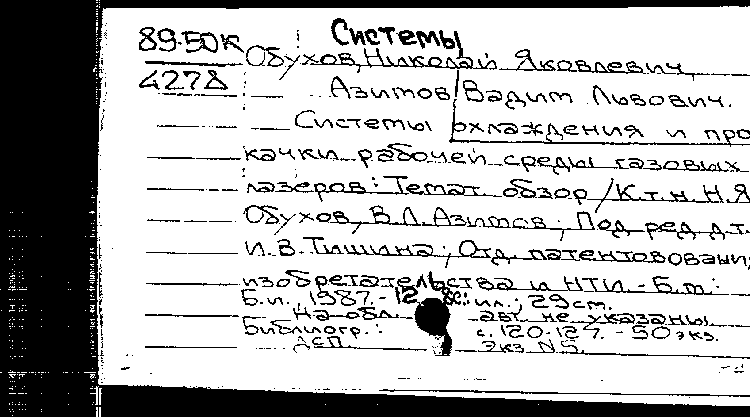 Системы
89-50К
Обухов, Николай Яковлевич,
4278
Азимов Вадим Львович.
Системы охлаждения и про
качки рабочей среды газовых
лазеров: Темат. обзор / К.т.н. Н.Я
Обухов, В.Л. Азимов; Под ред. д.т.
И.В. Тишина; Отд. патентования,
изобретательства и НТИ. - Б.м.:
Б.и., 1987. - 12 с.: ил.; 29 cm.
На обл. авт. не указаны.
Библиогр.: с. 120-127. - 50 экз.
ДСП Экз N5.